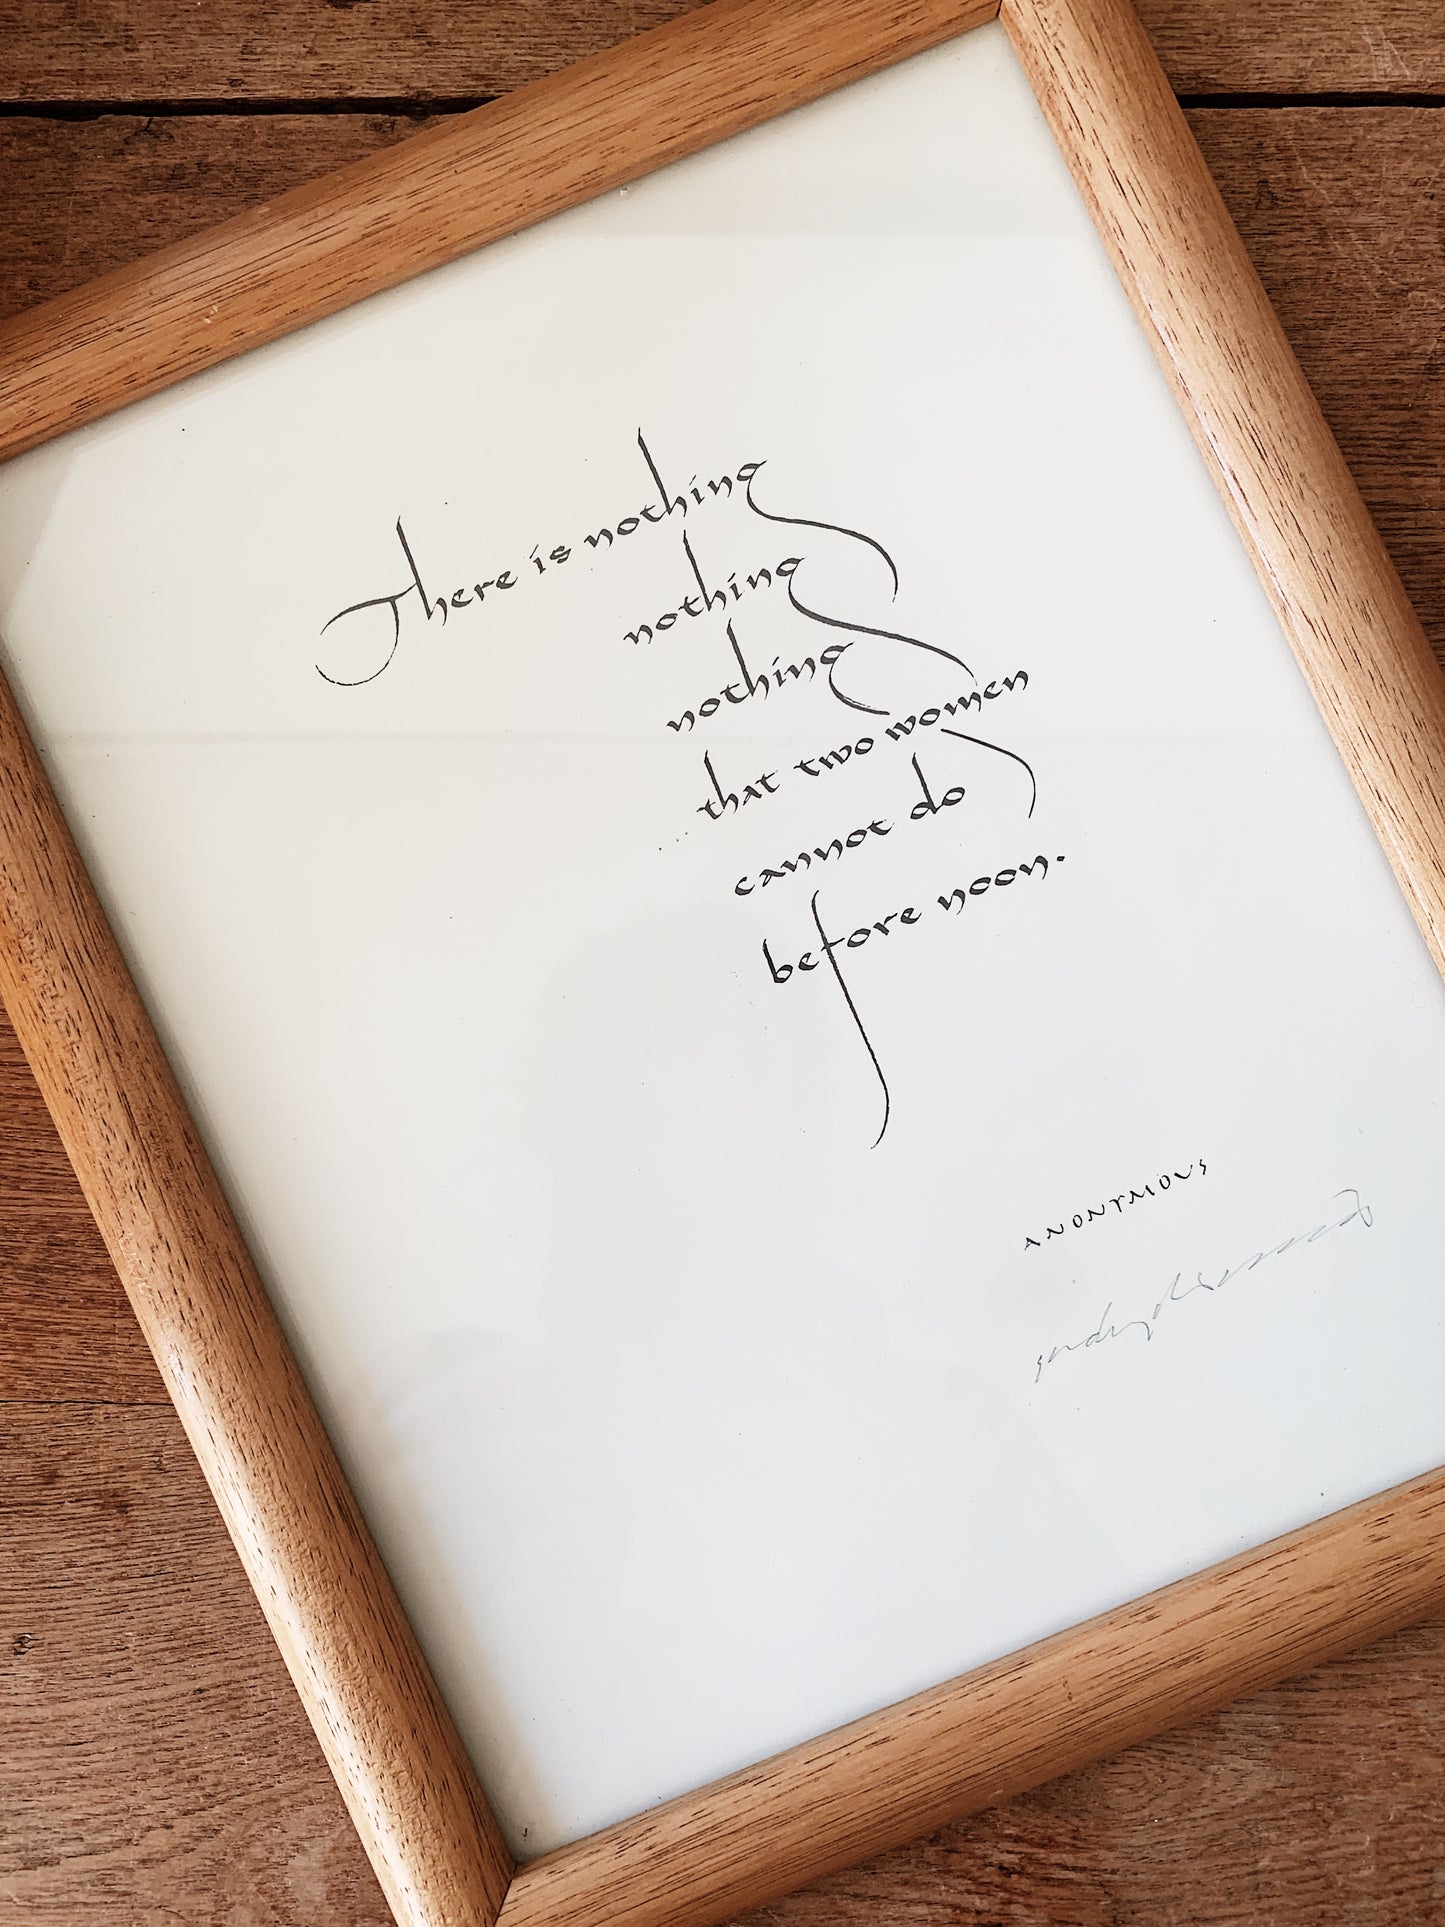 There is nothing
nothing
nothing
that two women
cannot do
before noon.
ANONYMOUS